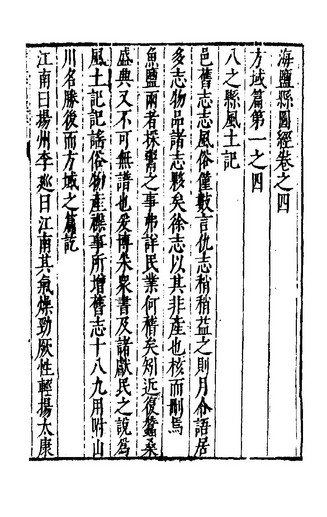 海鹽縣圖經卷之四
方域篇第一之四
八之縣風土記
邑舊志志風俗僅數言仇志稍稍益之則月令語居
多志物品諸志夥矣徐志以其非產也核而刪焉
魚鹽兩者採鬻之事弗詳民業何稽矣矧近復蠶桑
盛典又不可無譜也爰博采衆書及諸獻民之說爲
風土記記謠俗物產襍事所增舊志十八九用附山
川名勝後而方域之篇訖
江南曰揚州李巡曰江南其氣燥勁厥性輕揚太康